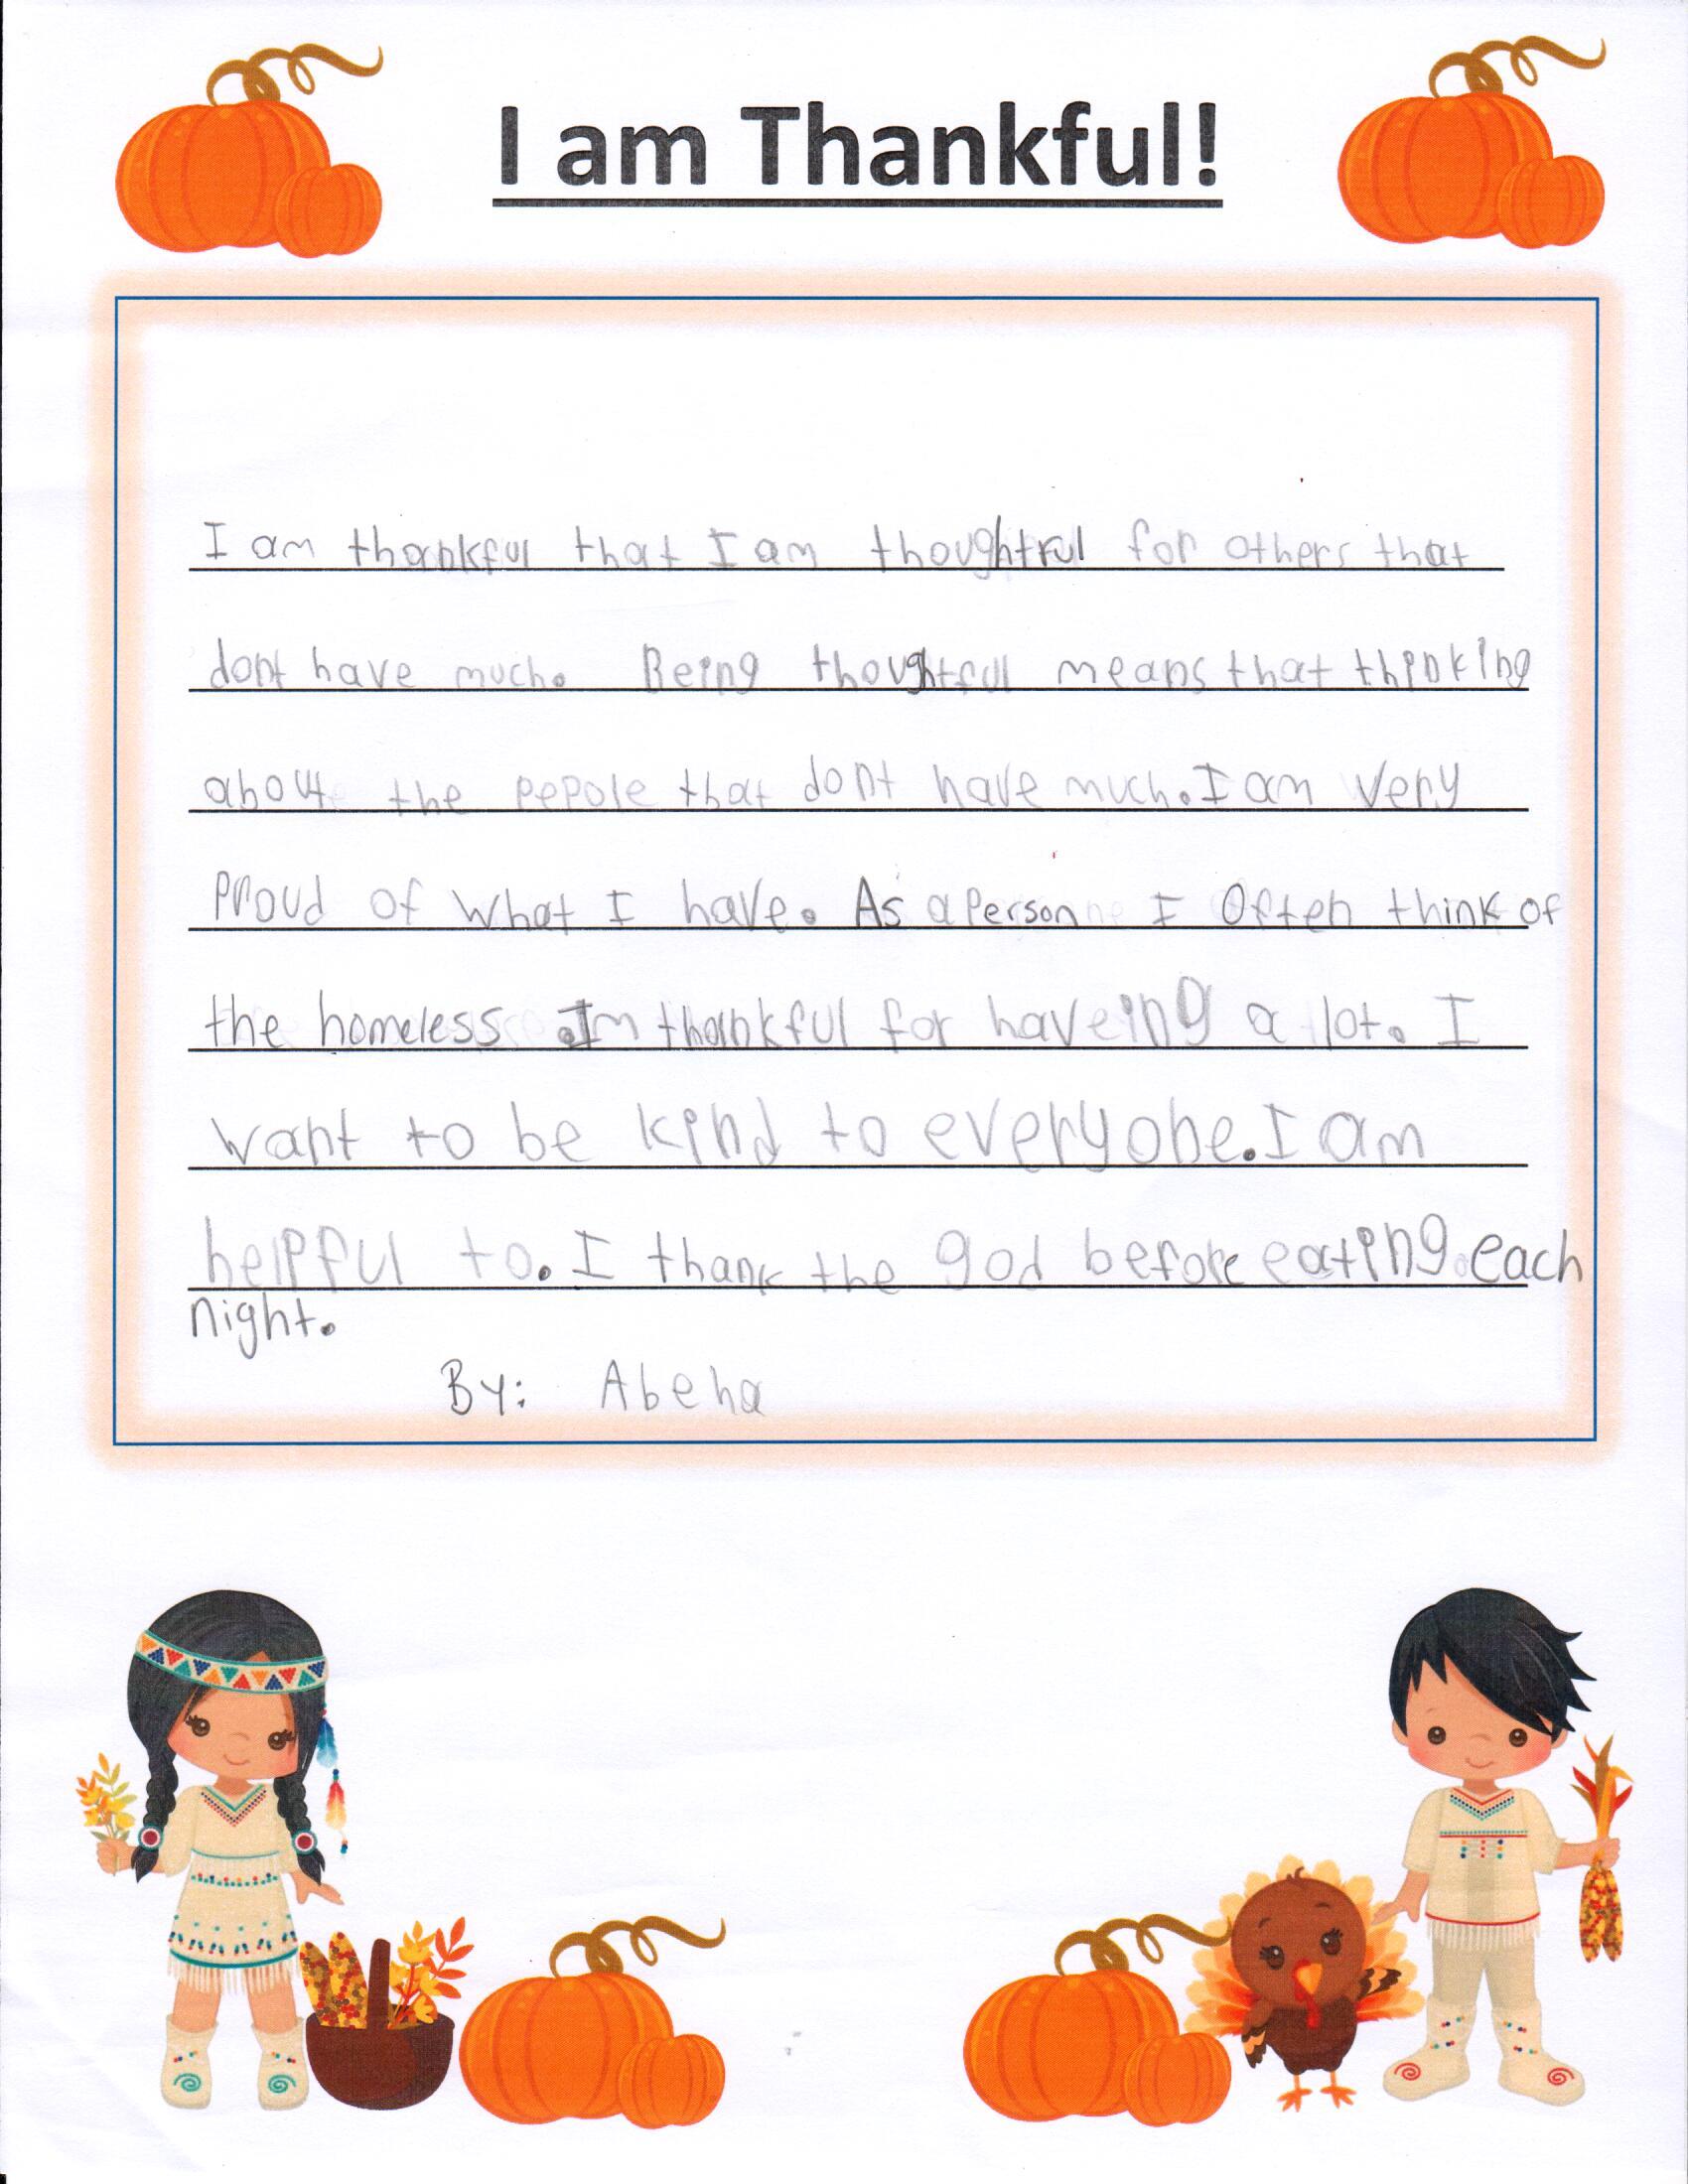 I am Thankful!
I am thankful that I am thoughtful for others that
dont have much. Being thoughtful means that thinking
about the pepole that dont have much. I am very
Proud of what I have. As a Person I Often think of
the homeless. Im thankful for haveing a lot. I
want to be kind to everyone. I am
helpful to. I thank the god before eating each
night.
By: Abeha